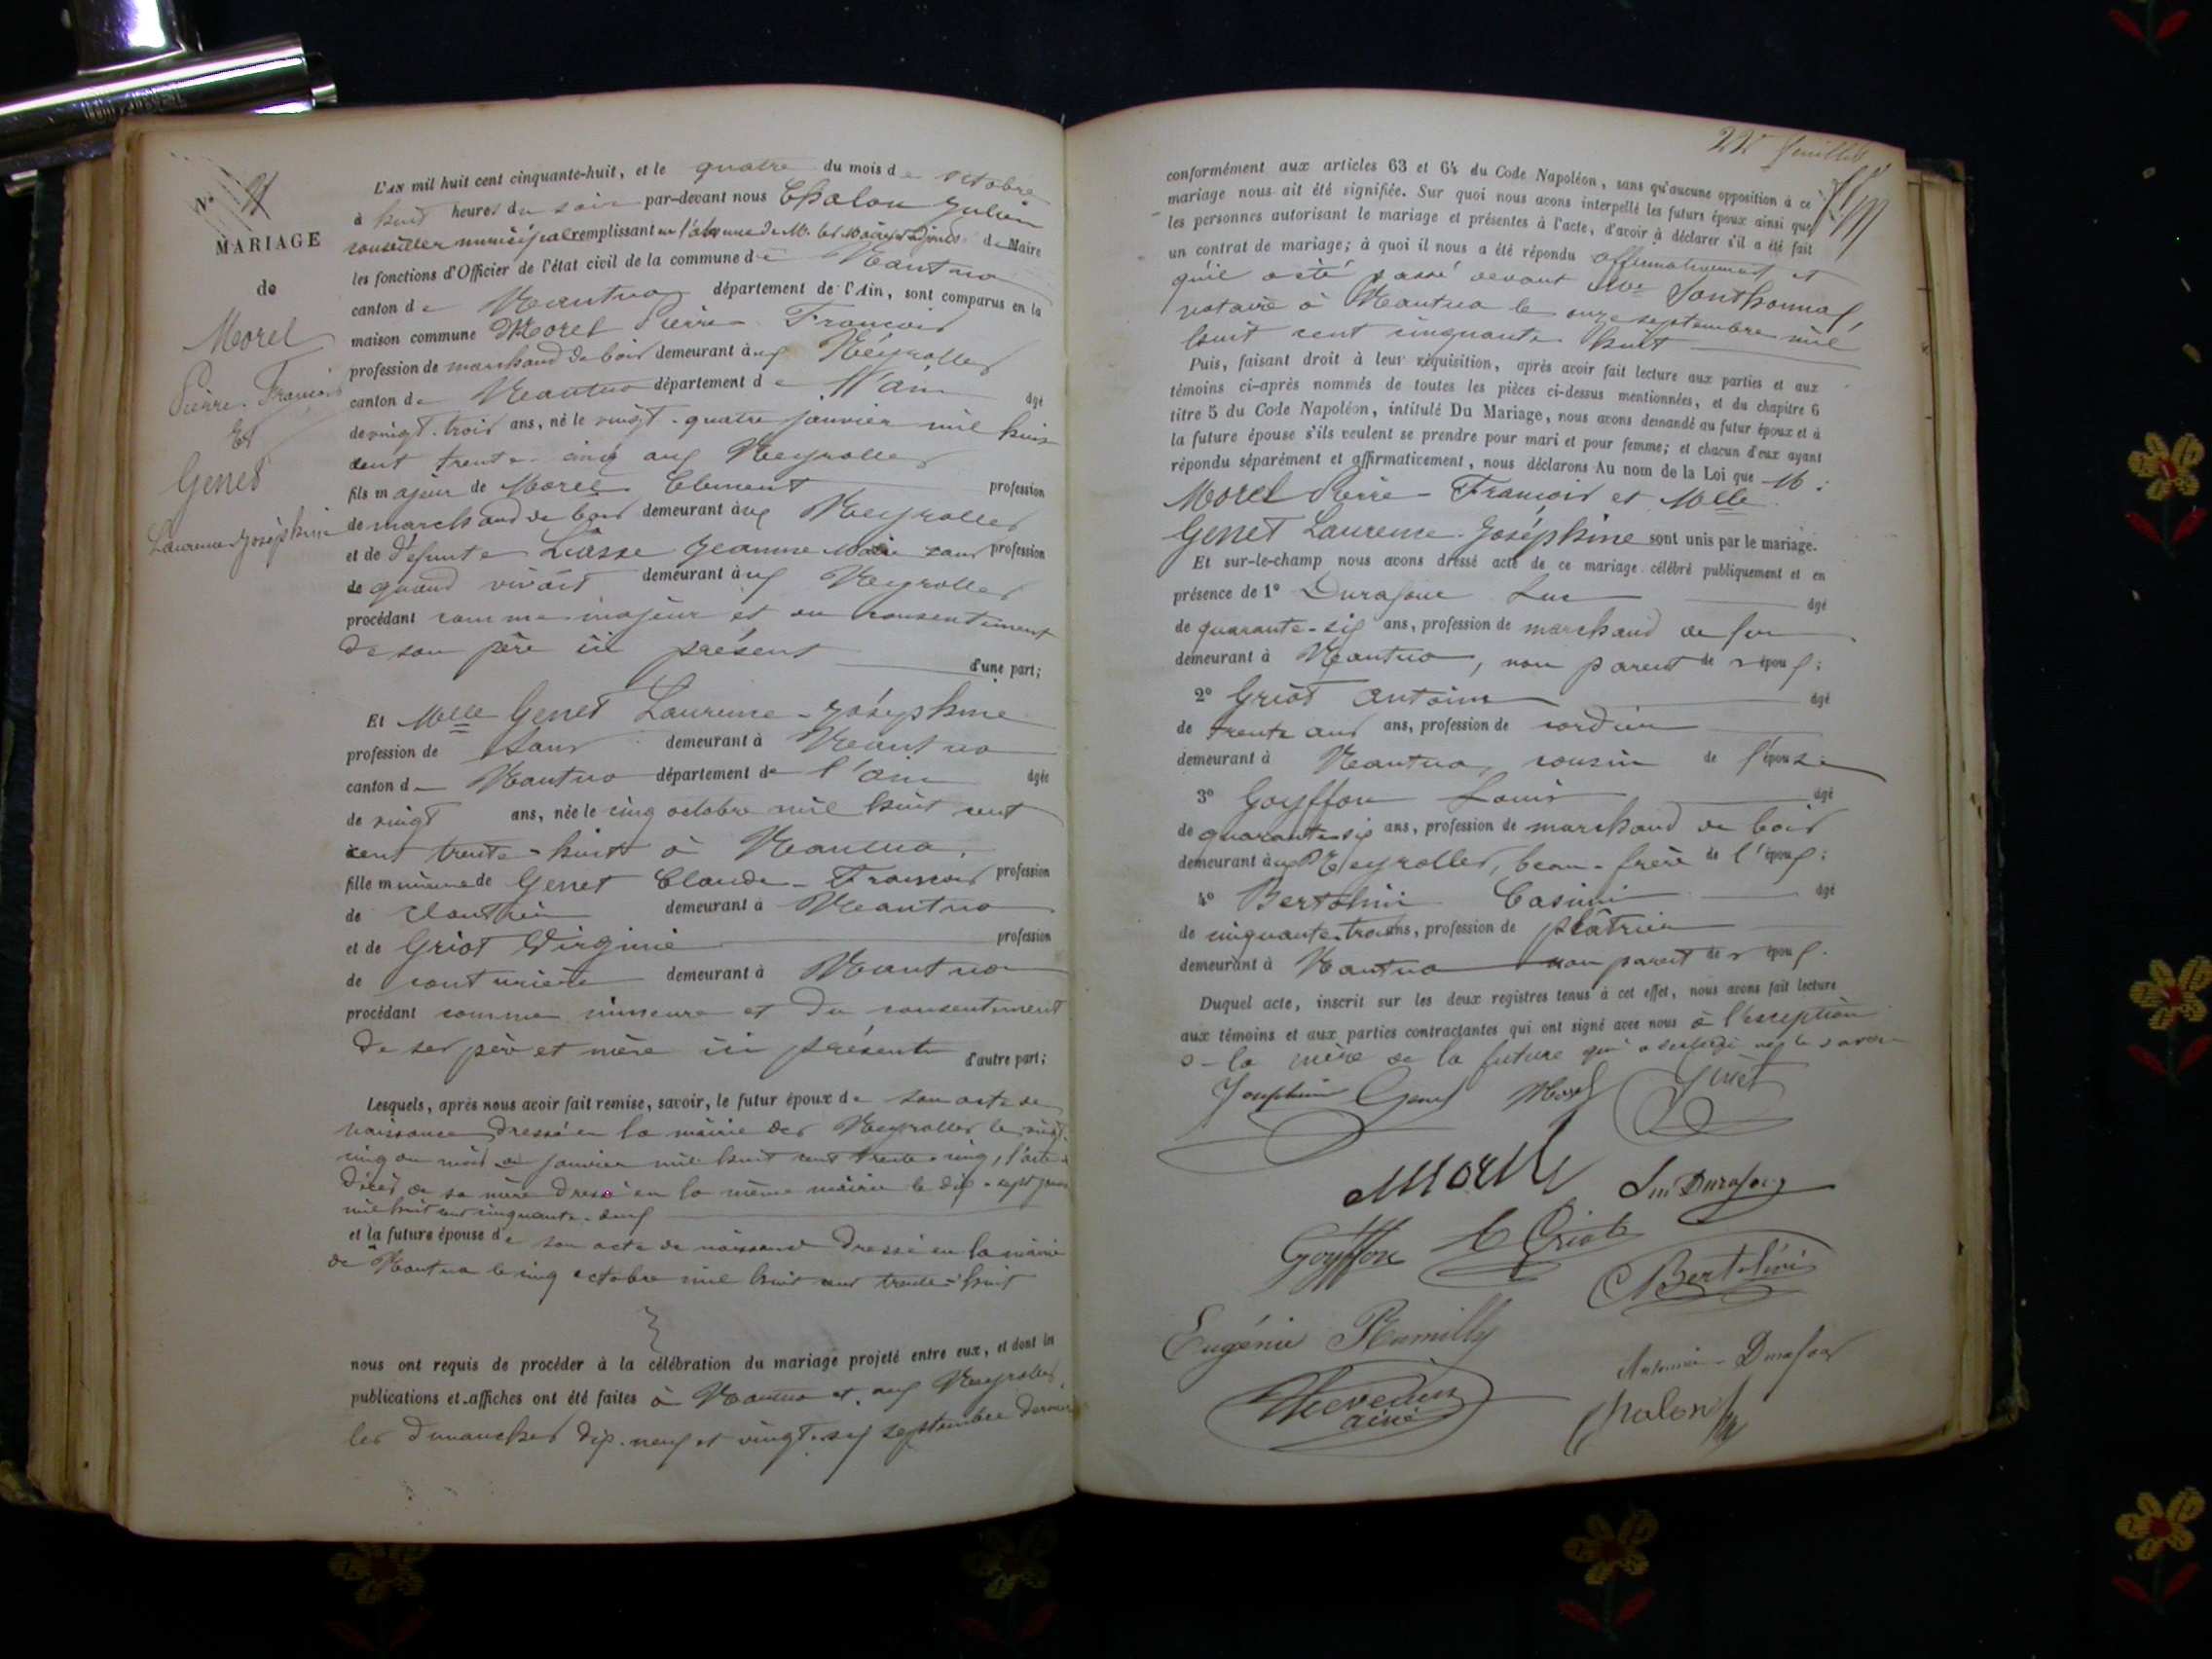 N°
MARIAGE
de
Morel
Pierre-François
Et
Genet
Laurence Joséphine
L'AN mil huit cent cinquante-huit, et le quatre du mois de octobre
à huit heures du soir par-devant nous Chalon Julien
conseiller municipal remplissant en l'absence de M. les Maire et adjoints de Maire
les fonctions d'Officier de l'état civil de la commune de Nantua
canton de Nantua département de l'Ain, sont comparus en la
maison commune Morel Pierre-François
profession de marchand de bois demeurant aux Neyrolles
canton de Nantua département de l'ain âgé
de vingt-trois ans, né le vingt-quatre janvier mil huit
cent trente-cinq aux Neyrolles
fils majeur de Morel Clément profession
de marchand de bois demeurant aux Neyrolles
et de défunte Liasse Jeanne Marie sans profession
de quand vivait demeurant aux Neyrolles
procédant comme majeur et du consentement
de son père ici présent d'une part;
Et Melle Genet Laurence-Joséphine
profession de sans demeurant à Nantua
canton de Nantua département de l'ain âgée
de vingt ans, née le cinq octobre mil huit cent
cent trente-huit à Nantua,
fille mineure de Genet Claude-François profession
de demeurant à Nantua
et de Griot Virginie profession
de couturière demeurant à Nantua
procédant comme mineure et du consentement
de ses père et mère ici présents d'autre part;
Lesquels, après nous avoir fait remise, savoir, le futur époux de son acte de
naissance dressé en la mairie des Neyrolles le vingt-
cinq du mois de janvier mil huit cent trente-cinq, l'acte de
décès de sa mère dressé en la même mairie le dix-sept
mil huit cent cinquante-deux
et la future épouse de son acte de naissance dressé en la mairie
de Nantua le cinq octobre mil huit cent trente-huit
nous ont requis de procéder à la célébration du mariage projeté entre eux, et dont les
publications et affiches ont été faites à Nantua et aux Neyrolles,
les dimanches dix-neuf et vingt-six septembre dernier
22e feuillet
conformément aux articles 63 et 64 du Code Napoléon, sans qu'aucune opposition à ce
mariage nous ait été signifiée. Sur quoi nous avons interpellé les futurs époux ainsi que
les personnes autorisant le mariage et présentes à l'acte, d'avoir à déclarer s'il a été fait
un contrat de mariage; à quoi il nous a été répondu affirmativement et
qu'il a été passé devant Me Santhonnax,
notaire à Nantua le onze septembre mil
huit cent cinquante huit
Puis, faisant droit à leur réquisition, après avoir fait lecture aux parties et aux
témoins ci-après nommés de toutes les pièces ci-dessus mentionnées, et du chapitre 6
titre 5 du Code Napoléon, intitulé Du Mariage, nous avons demandé au futur époux et à
la future épouse s'ils veulent se prendre pour mari et pour femme; et chacun d'eux ayant
répondu séparément et affirmativement, nous déclarons Au nom de la Loi que M.
Morel Pierre-François et Melle
Genet Laurence-Joséphine sont unis par le mariage.
Et sur-le-champ nous avons dressé acte de ce mariage célébré publiquement et en
présence de 1° Durafour Luc âgé
de quarante-six ans, profession de marchand de fer
demeurant à Nantua, non parent des époux;
2° Griot Antoine âgé
de trente ans ans, profession de cordier
demeurant à Nantua, cousin de l'épouse
3° Goyffon Louis âgé
de quarante-six ans, profession de marchand de bois
demeurant aux Neyrolles, beau-frère de l'époux;
4° Bertolini Casimir âgé
de cinquante-trois ans, profession de plâtrier
demeurant à Nantua non parent des époux.
Duquel acte, inscrit sur les deux registres tenus à cet effet, nous avons fait lecture
aux témoins et aux parties contractantes qui ont signé avec nous à l'exception
de la mère de la future qui a ne le savoir
Josephine Genet Morel Genet
Morel Luc Durafour
Goyffon Griot
C Bertolini
Eugénie Rumilly
Antonine Durafour
Thevenin
ainé
Chalon